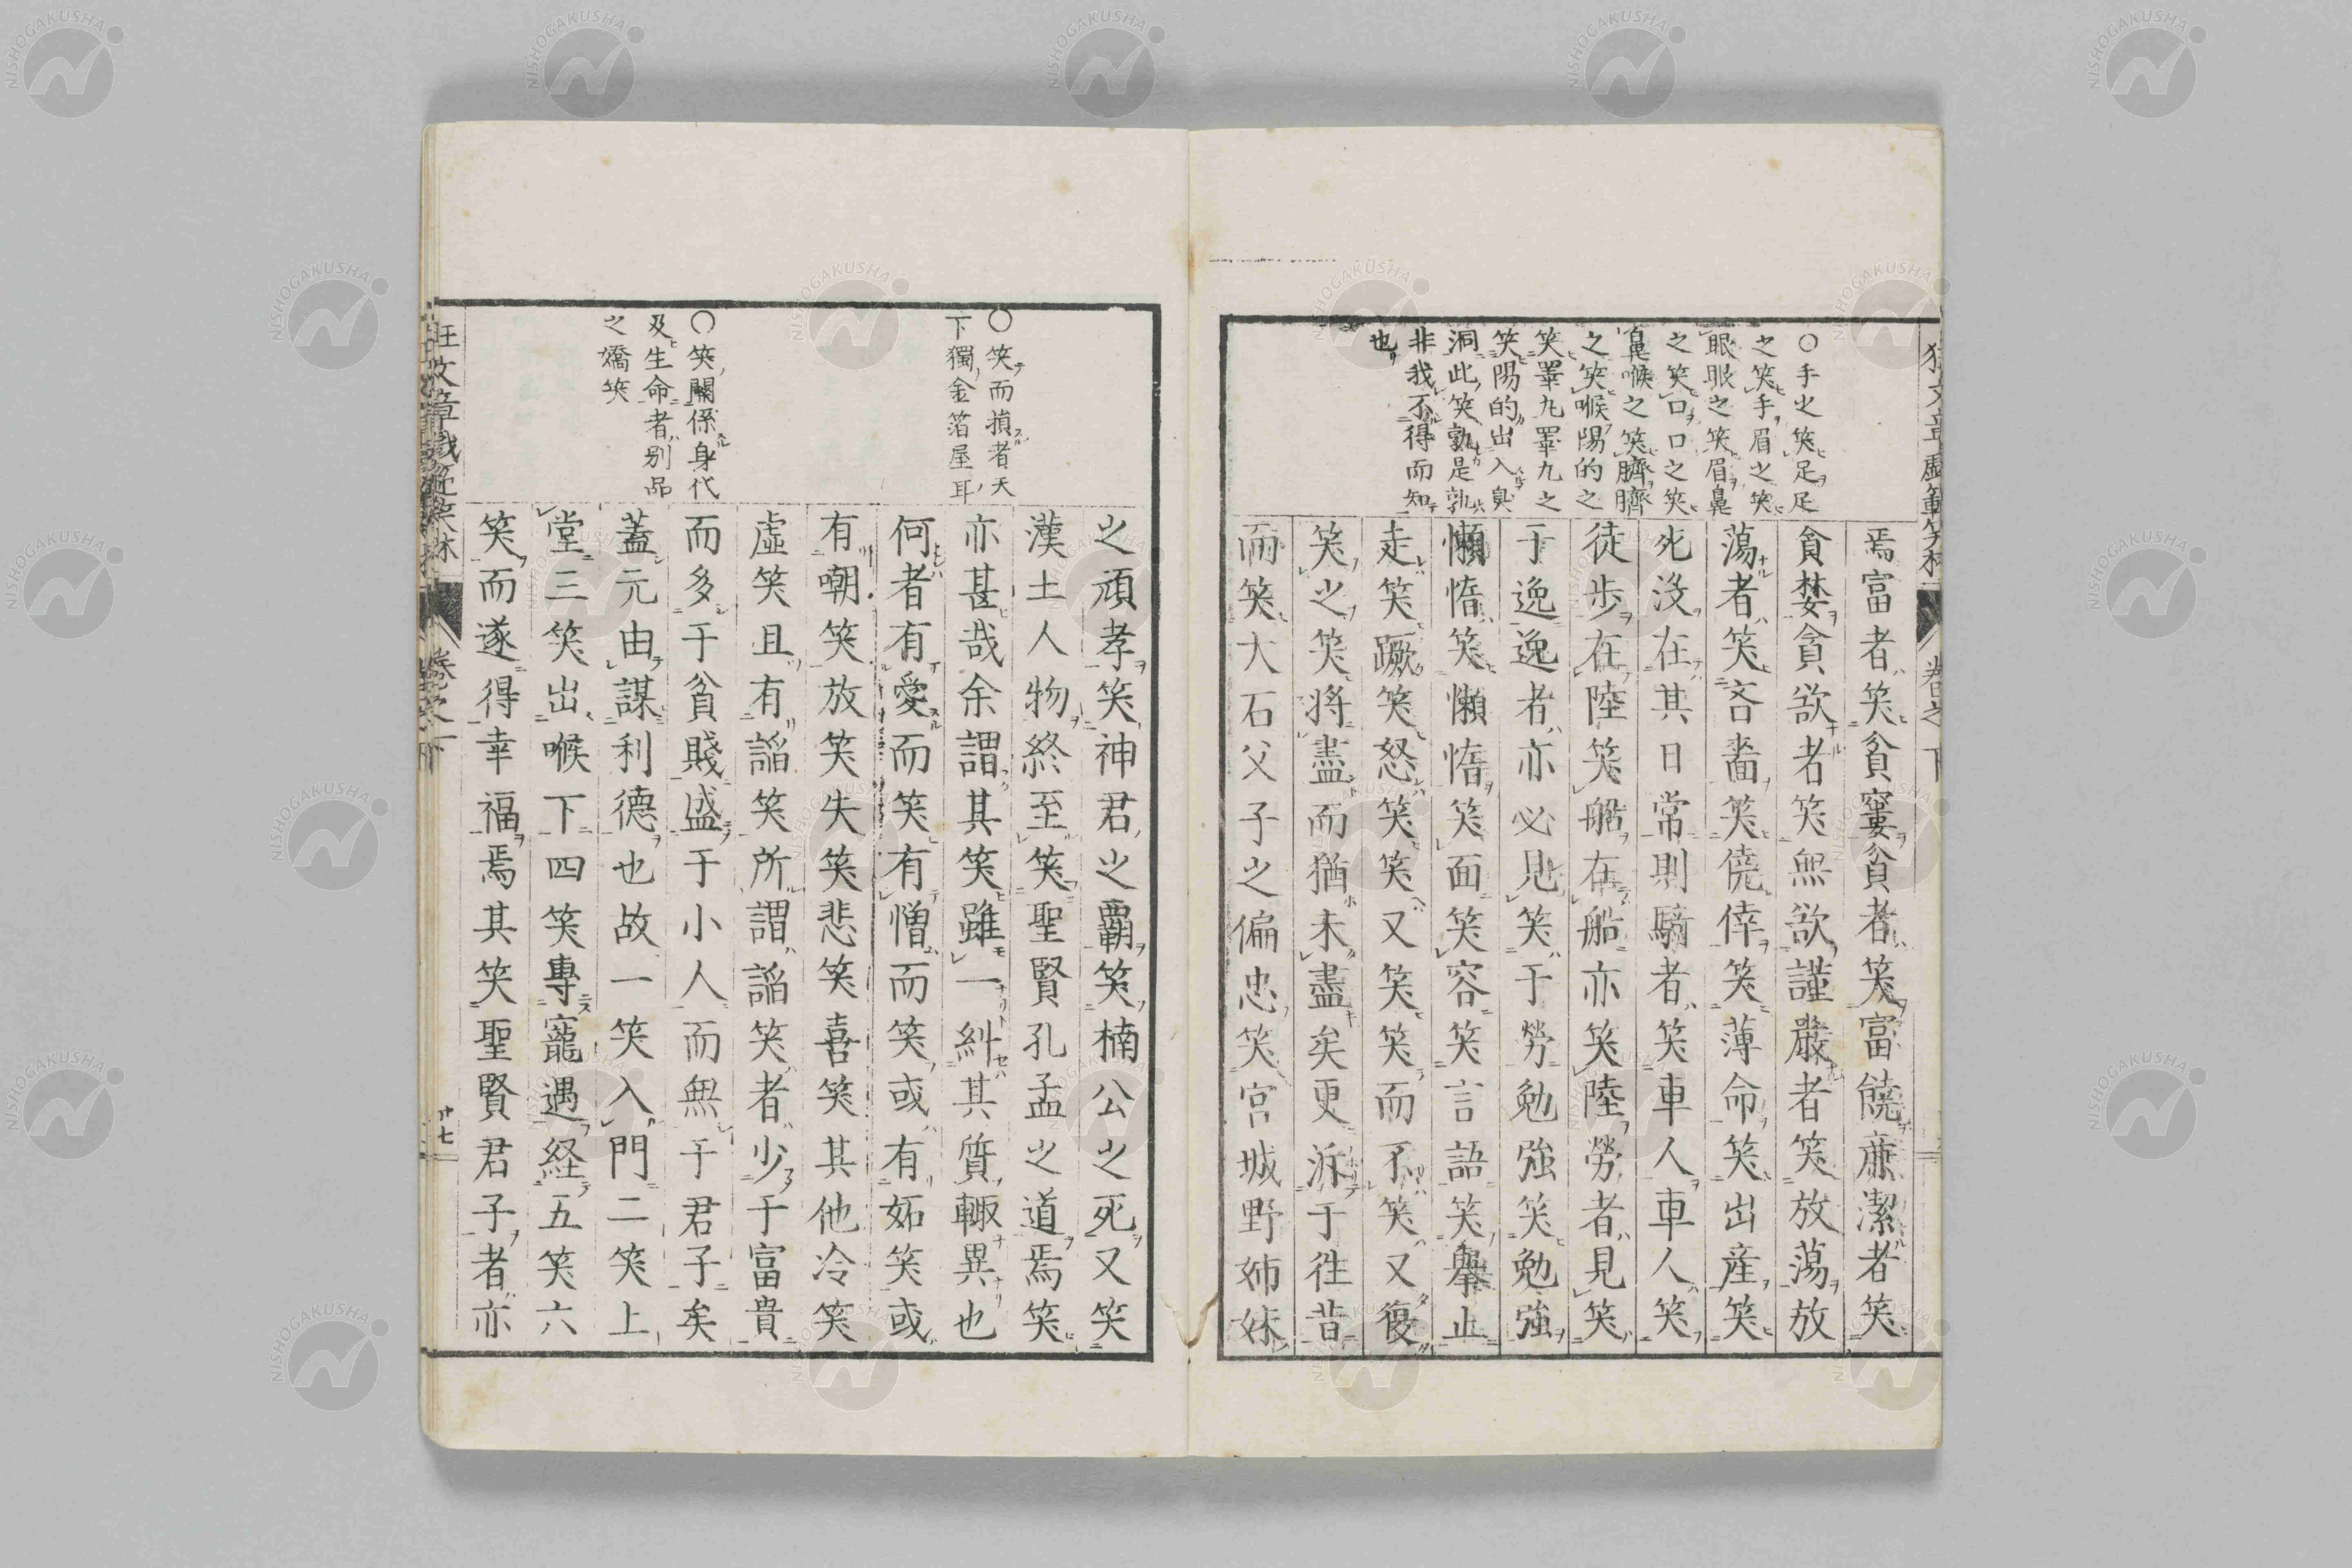 〇手之笑足足
之笑手眉之笑
眼眼之笑眉鼻
之笑口口之笑
鼻喉之笑臍臍
之笑喉陽的之
笑睪九睪九之
笑陽的出入臭
洞此笑孰是孰
非我不得而知
也
焉富者笑貧窶貧者笑富饒廉潔者笑
貪婪貪欲者笑無欲謹嚴者笑放蕩放
蕩者笑吝嗇笑僥倖笑薄命笑出産笑
死没在其日常則騎者笑車人車人笑
徒步在陸笑船在船亦笑陸勞者見笑
于逸逸者亦必見笑于勞勉強笑勉強
懶惰笑懶惰笑面笑容笑言語笑擧止
走笑蹶笑怒笑笑又笑笑而不笑又復
笑之笑將盡而猶未盡矣更泝于徃昔
而笑大石父子之偏忠笑宮城野姉妹
〇笑而損者天
下獨金箔屋耳
〇笑關係身代
及生命者別品
之嬌笑
之頑孝笑神君之覇笑楠公之死又笑
漢土人物終至笑聖賢孔孟之道焉笑
亦甚哉余謂其笑雖一糾其質輙異也
何者有愛而笑有憎而笑或有妬笑或
有嘲笑放笑失笑悲笑喜笑其他冷笑
虛笑且有謟笑所謂謟笑者少于富貴
而多于貧賤盛于小人而無于君子矣
蓋元由謀利德也故一笑入門二笑上
堂三笑出喉下四笑專寵遇経五笑六
笑而遂得幸福焉其笑聖賢君子者亦
卷之下
十七
NISHOGAKUSHA